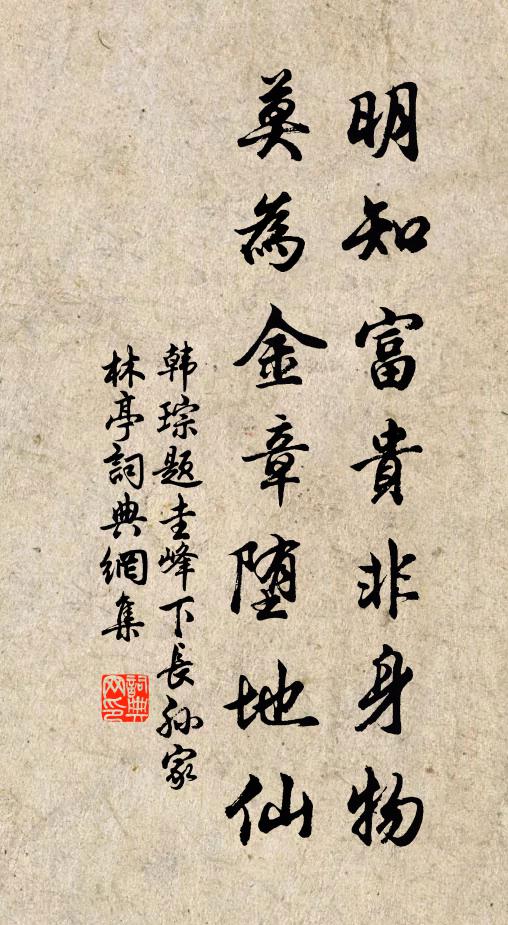 明知富貴非身物
莫為金章堕地仙
韩琮题圭峰下長孙家
林亭詞典網集
詞典
网印